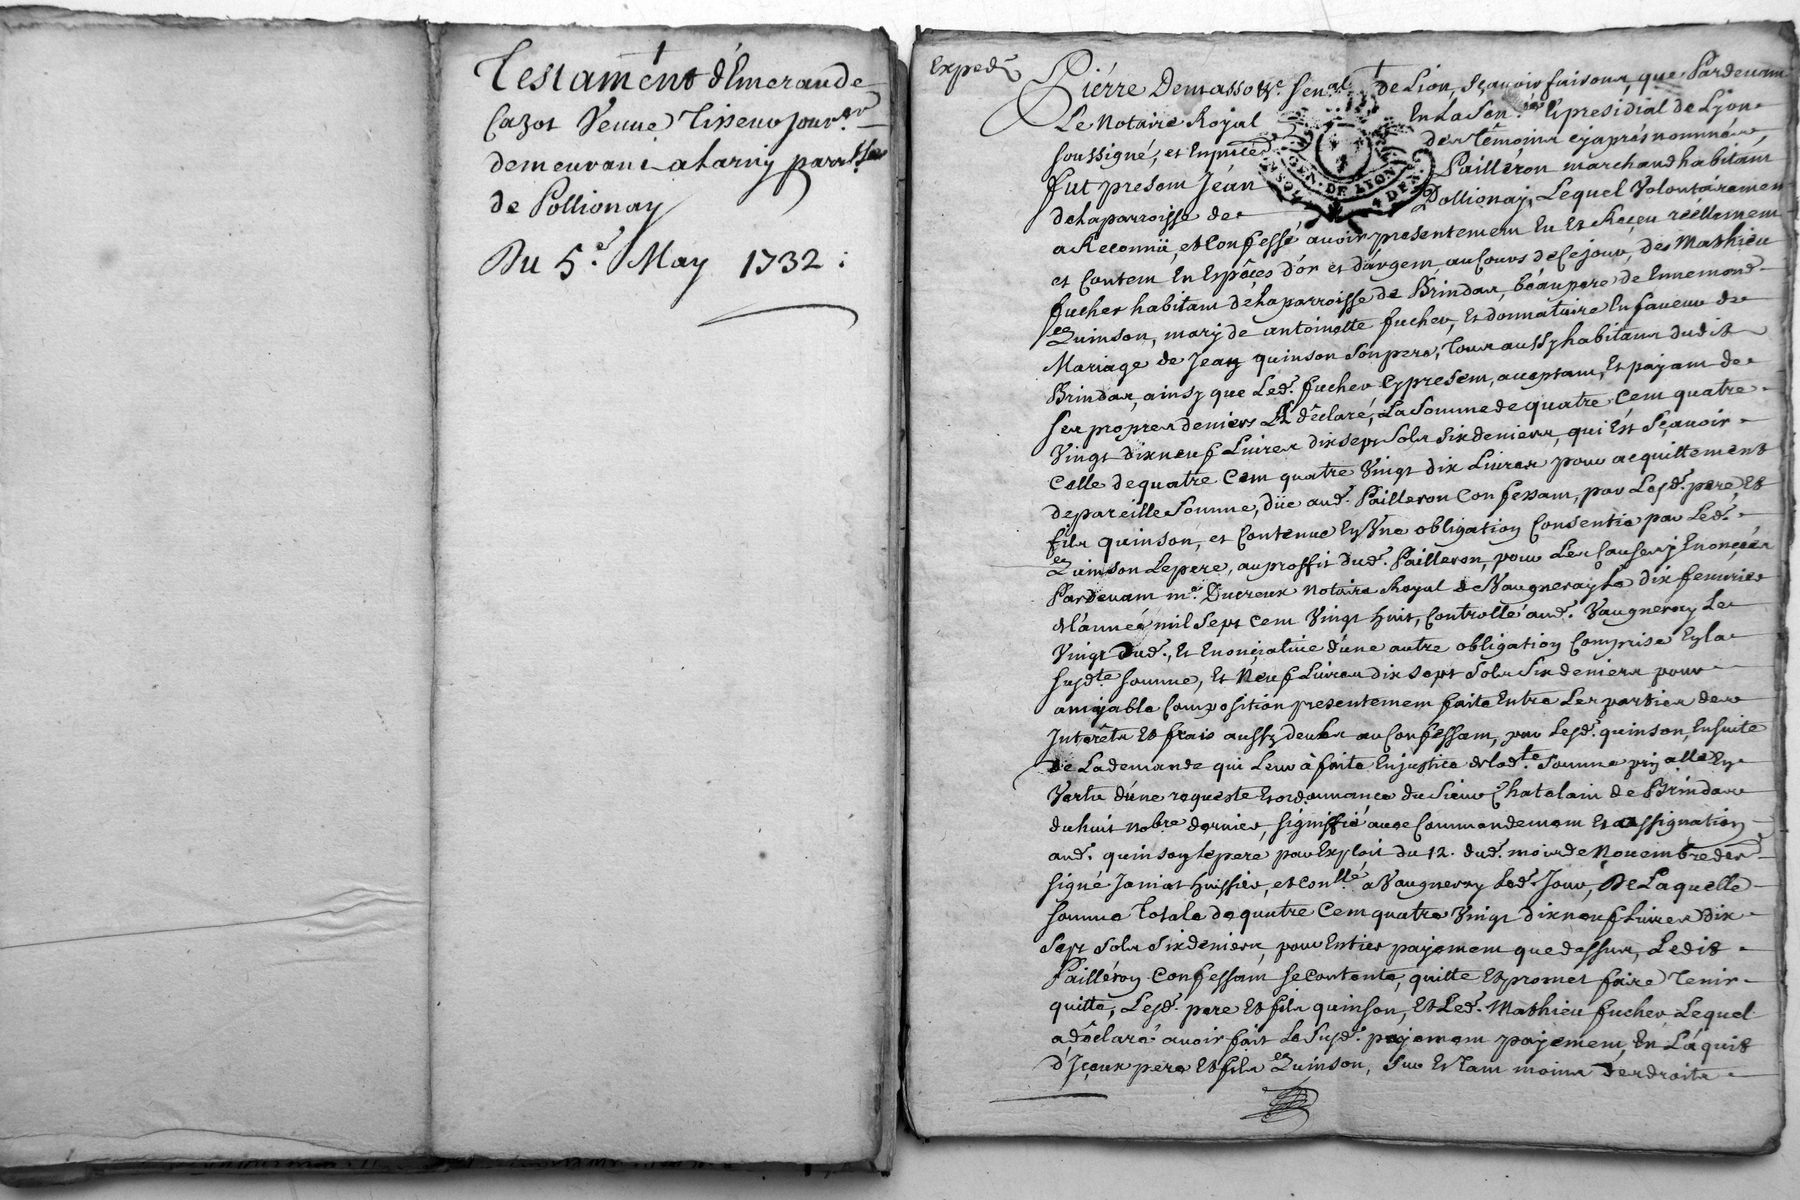 Testament d'Emerande
Cazot Veuve Tisseur jour.er
demeurant a Larny parr.sse
de Pollionay
Du 5.e May 1732 :
Exped.
Pierre Demasso &c. Sen.al de Lion, sçavoir faisons, que Pardevant
Le Notaire Royal En La Sen. & presidial de Lyon
soussigné, et En pnce des Témoins cyaprés nommés,
fut present Jean Pailléron marchand habitant
de la parroisse de Pollionay, Lequel Volontairement
a Reconnü, et Confessé avoir presentement Eu Et Reçeu réellement
et Contant En Espéces d'or et d'argent au Cours de Ce jour, de Mathieu
fucher habitant de La parroisse de Brindas, béaupere de Ennemond
Quinson, mary de antoinette fucher, Et donnataire En faveur de
Mariage de Jean quinson Son pere, Tous aussy habitans dudit
Brindas, ainsy que Led. fucher Cy present, acceptant, Et payant de
ses propres deniers Et déclaré, La Somme de quatre Cent quatre
Vingt dix neuf Livres dix sept Sols Six deniers, qui Est Sçavoir
Celle de quatre Cent quatre Vingt dix Livres pour acquittement
de pareille Somme, düe aud. Pailleron Confessant, par Lesd. pere, Et
fils quinson, et Contenue En Une obligation Consentie par Led.
Quinson Le pere, au proffit dud. Pailleron, pour Les Causes y Enoncées
Pardevant m.e Ducreux Notaire Royal de Vaugneray Le dix fevrier
de L'année mil Sept Cent Vingt huit, Controllé aud. Vaugneray Le
Vingt dud., Et Enonciative d'une autre obligation Comprise En La
susd.te Somme, Et Neuf Livres dix sept Sols Six deniers pour
amyable Composition presentement faite Entre Les parties des
Interêts Et frais aussy deubs au Confessant, par Lesd. quinson, Ensuite
de La demande qui Leur à faite En justice de Lad.te Somme prin.alle En
Vertu d'une requeste Et ordonnance du Sieur Chatelain de Brindas
du huit nobre dernier, signiffié avec Commandement Et assignation
aud. quinson Le pere par Exploit du 12. dud. mois de Novembre der.
signé Janiat huissier, et con.llé a Vaugneray Led. Jour, De Laquelle
somme Totale de quatre Cent quatre Vingt dix neuf Livres dix
Sept Sols Six deniers, pour Entier payement que dessus, Ledit
Pailléron Confessant se contente, quitte Et promet faire Tenir
quitte, Lesd. pere Et fils quinson, Et Led. Mathieu fucher Lequel
a déclaré avoir fait Le Susd. payement payement, En L'aquit
d'Iceux pere Et fils Quinson, Sur Et Tant moins des droits